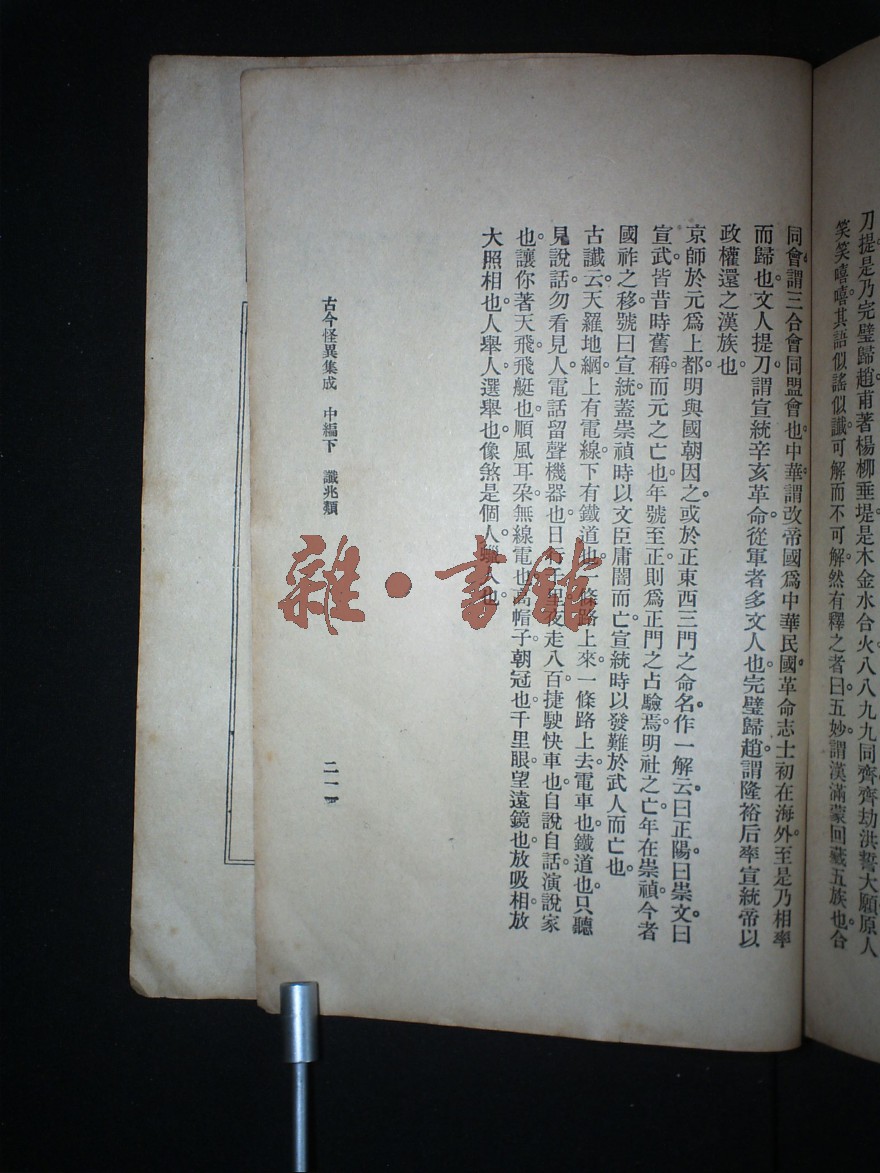 刀提是乃完璧歸趙甫著楊柳垂堤是木金水合火八八九九同齊齊劫洪誓大願原人
笑笑嘻嘻其語似謠似讖可解而不可解然有釋之者曰五妙謂漢滿蒙回藏五族也合
同會謂三合會同盟會也中華謂改帝國爲中華民國革命志士初在海外至是乃相率
而歸也文人提刀謂宣統辛亥革命從軍者多文人也完璧歸趙謂隆裕后率宣統帝以
政權還之漢族也
京師於元爲上都明與國朝因之或於正東西三門之命名作一解云曰正陽曰崇文曰
宣武皆昔時舊稱而元之亡也年號至正則爲正門之占驗焉明社之亡年在崇禎今者
國祚之移號曰宣統蓋崇禎時以文臣庸闇而亡宣統時以發難於武人而亡也
古讖云天羅地網上有電線下有鐵道也一條路上來一條路上去電車也鐵道也只聽
見說話勿看見人電話留聲機器也日行千里夜走八百捷駛快車也自說自話演說家
也讓你著天飛飛艇也順風耳朶無線電也高帽子朝冠也千里眼望遠鏡也放吸相放
大照相也人舉人選舉也像煞是個人蠟人也
古今怪異集成 中編下 讖兆類
二一一
雜·書館